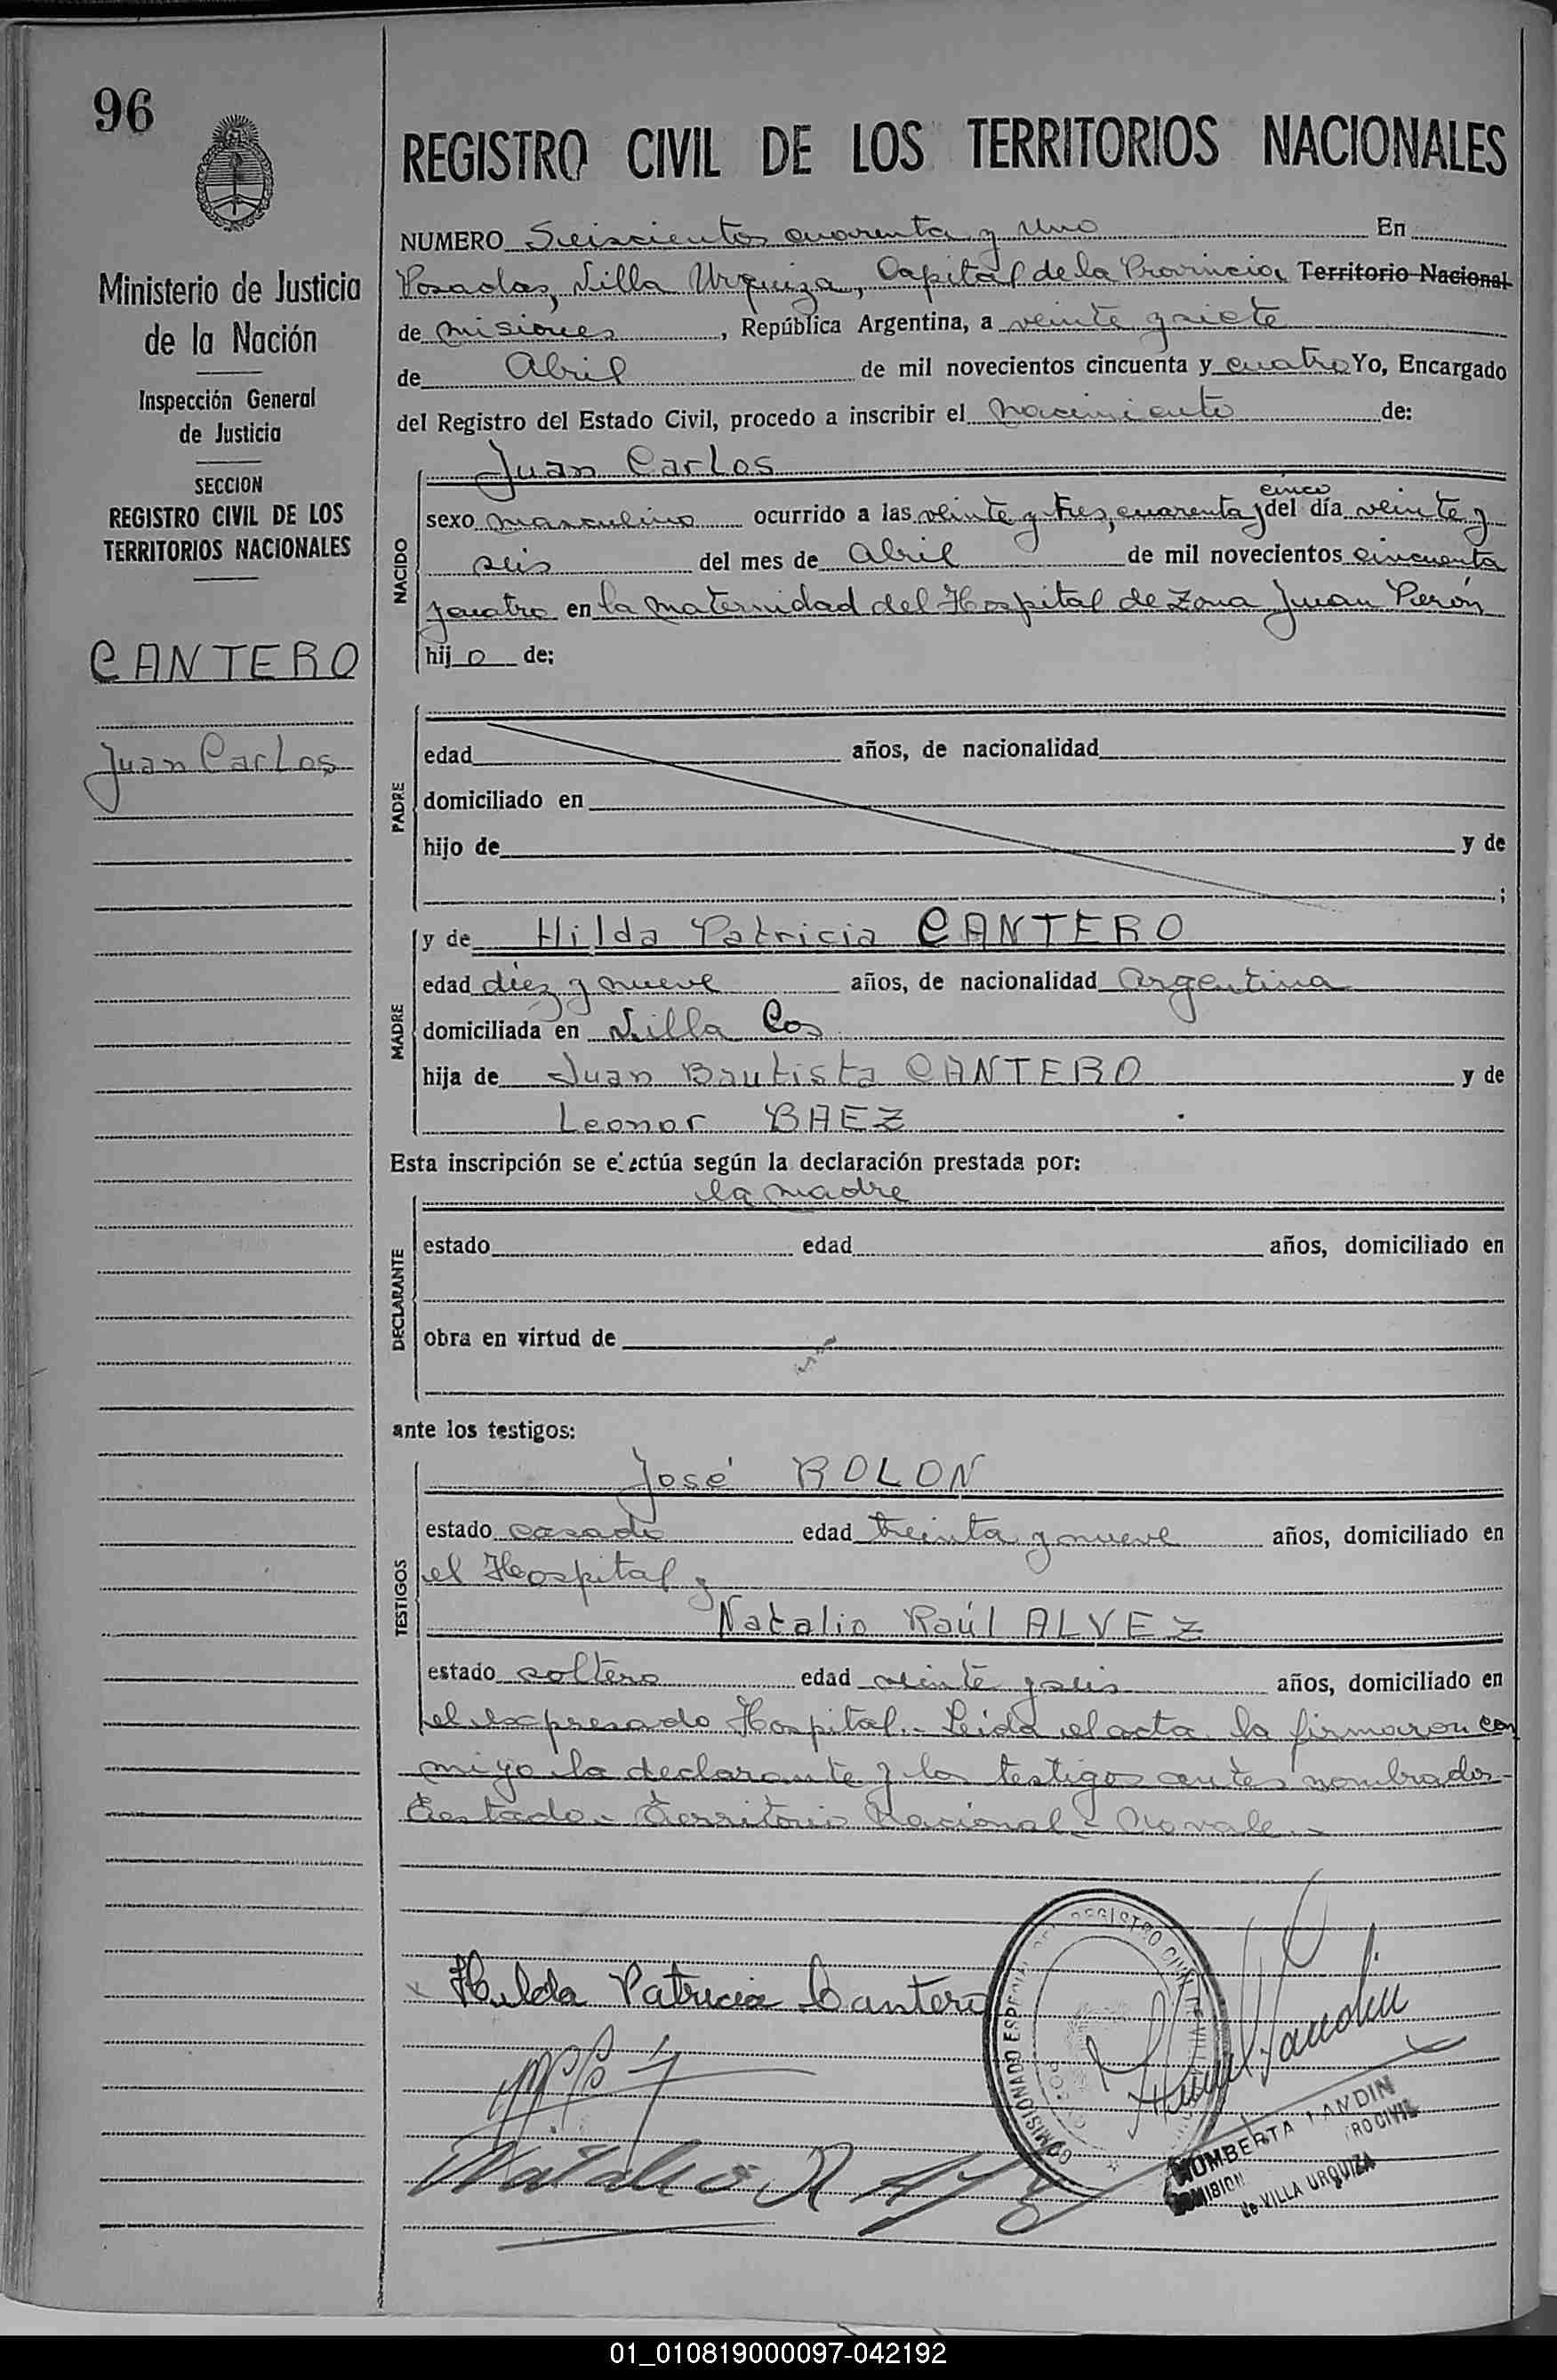 96
REGISTRO CIVIL DE LOS TERRITORIOS NACIONALES
Ministerio de Justicia
de la Nación
Inspección General
de Justicia
SECCION
REGISTRO CIVIL DE LOS
TERRITORIOS NACIONALES
CANTERO
Juan Carlos
NUMERO Seiscientos cuarenta y uno En
Posadas, Villa Urquiza, Capital de la Provincia Territorio Nacional
de Misiones, República Argentina, a veinte y siete
de Abril de mil novecientos cincuenta y cuatro Yo, Encargado
del Registro del Estado Civil, procedo a inscribir el nacimiento de:
NACIDO
Juan Carlos
cinco
sexo masculino ocurrido a las veinte y tres, cuarenta y del día veinte y
seis del mes de Abril de mil novecientos cincuenta
y cuatro en la Maternidad del Hospital de Zona Juan Perón
hijo de:
PADRE
edad años, de nacionalidad
domiciliado en
hijo de y de
;
MADRE
y de Hilda Patricia CANTERO
edad diez y nueve años, de nacionalidad Argentina
domiciliada en Villa Cos
hija de Juan Bautista CANTERO y de
Leonor BAEZ
Esta inscripción se efectúa según la declaración prestada por:
DECLARANTE
la madre
estado edad años, domiciliado en
obra en virtud de
ante los testigos:
TESTIGOS
José ROLON
estado casado edad treinta y nueve años, domiciliado en
el Hospital y
Natalio Raúl ALVEZ
estado soltero edad veinte y seis años, domiciliado en
el expresado Hospital.- Leida el acta la firmaron con
migo la declarante y los testigos antes nombrados-
Testado- Territorio Nacional- No vale.-
Hilda Patricia Cantero
Natalio R
COMISIONADO ESPECIAL DEL REGISTRO CIVIL
HUMBERTA LANDIN
de VILLA URQUIZA
01_010819000097-042192